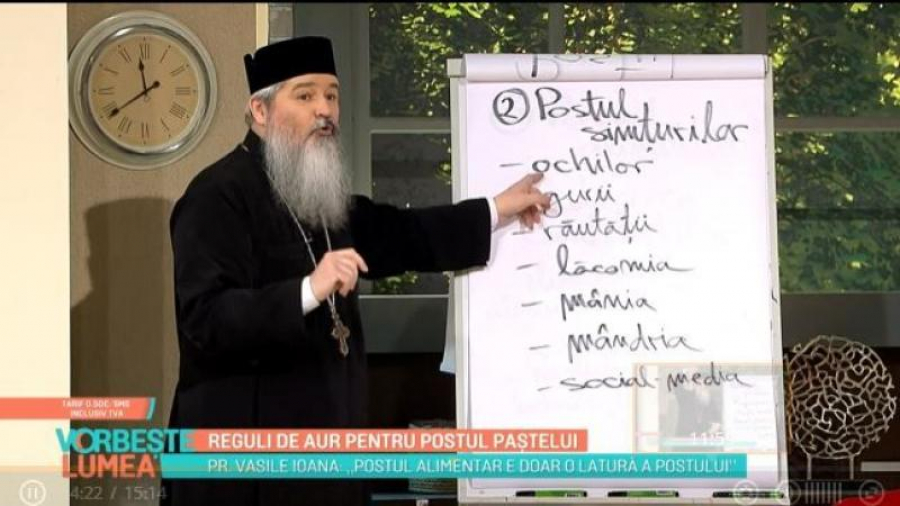 ② Postul
simțurilor
- ochilor
gurii
- răutății
- lăcomia
- mânia
- mândria
- social-media
TARIF 0.5DC. SMS
INCLUSIV TVA
VORBEȘTE
LUMEA
REGULI DE AUR PENTRU POSTUL PAȘTELUI
PR. VASILE IOANA: „POSTUL ALIMENTAR E DOAR O LATURĂ A POSTULUI"
4:22 / 15:14